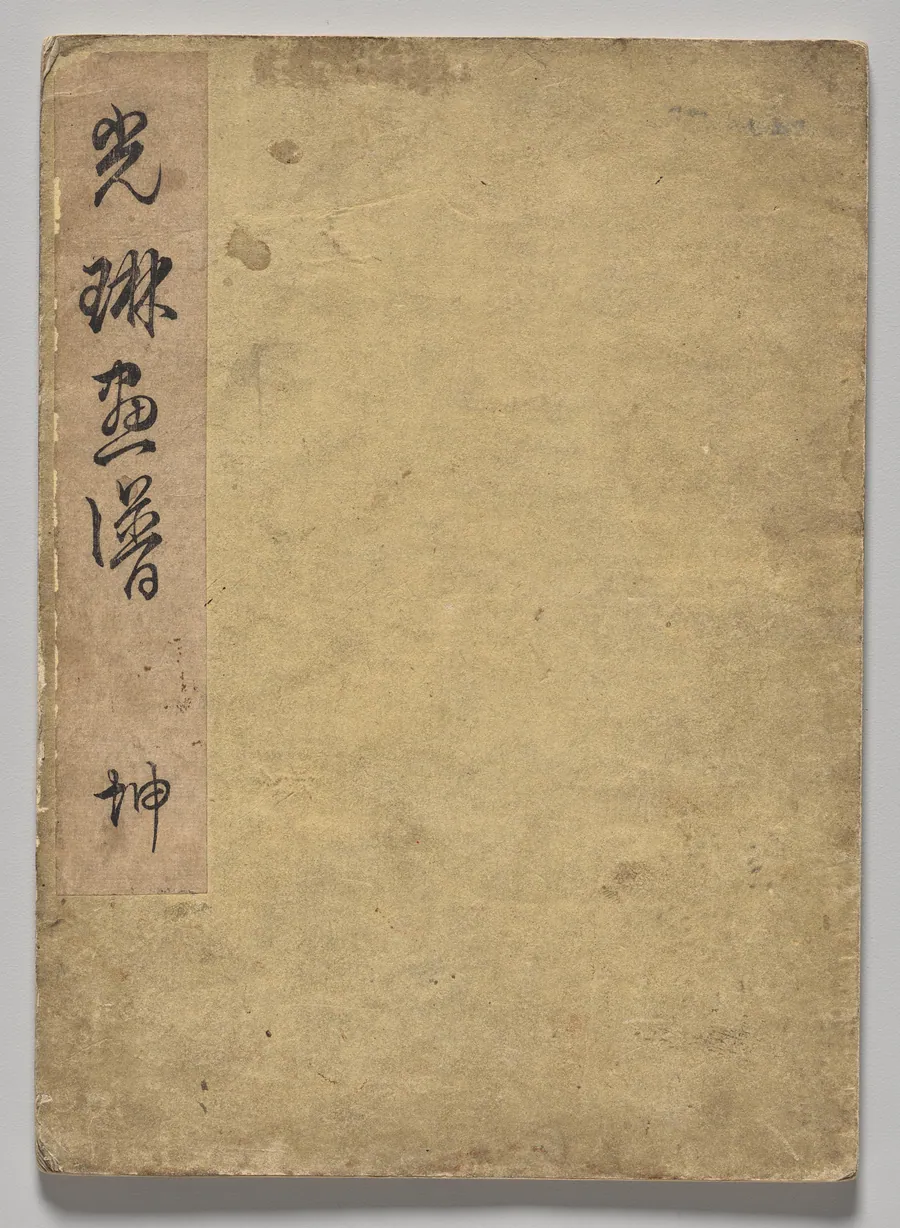 光琳画譜
坤